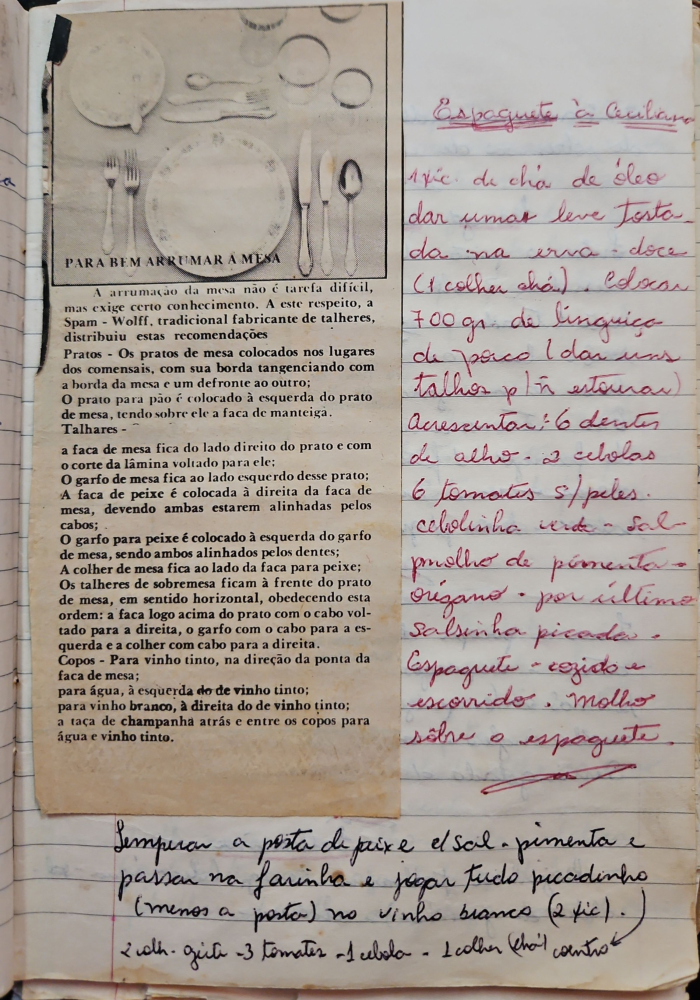 PARA BEM ARRUMAR A MESA
A arrumação da mesa não é tarefa difícil,
mas exige certo conhecimento. A este respeito, a
Spam - Wolff, tradicional fabricante de talheres,
distribuiu estas recomendações
Pratos - Os pratos de mesa colocados nos lugares
dos comensais, com sua borda tangenciando com
a borda da mesa e um defronte ao outro;
O prato para pão é colocado à esquerda do prato
de mesa, tendo sobre ele a faca de manteiga.
Talhares -
a faca de mesa fica do lado direito do prato e com
o corte da lâmina voltado para ele;
O garfo de mesa fica ao lado esquerdo desse prato;
A faca de peixe é colocada à direita da faca de
mesa, devendo ambas estarem alinhadas pelos
cabos;
O garfo para peixe é colocado à esquerda do garfo
de mesa, sendo ambos alinhados pelos dentes;
A colher de mesa fica ao lado da faca para peixe;
Os talheres de sobremesa ficam à frente do prato
de mesa, em sentido horizontal, obedecendo esta
ordem: a faca logo acima do prato com o cabo vol-
tado para a direita, o garfo com o cabo para a es-
querda e a colher com cabo para a direita.
Copos - Para vinho tinto, na direção da ponta da
faca de mesa;
para água, à esquerda do de vinho tinto;
para vinho branco, à direita do de vinho tinto;
a taça de champanha atrás e entre os copos para
água e vinho tinto.
Espaguete à
1 xic. de chá de óleo
dar uma leve tosta-
da na erva-doce
(1 colher chá). Colocar
700 gr. de linguiça
de porco (dar uns
talhos p/ ñ estourar)
Acrescentar: 6 dentes
de alho - 2 cebolas
6 tomates s/peles.
cebolinha verde - sal-
molho de pimenta-
orégano - por último
salsinha picada.
Espaguete - cozido e
escorrido. Molho
sôbre o espaguete.
Temperar a posta de peixe c/ sal - pimenta e
passar na farinha e jogar tudo picadinho
(menos a posta) no vinho branco (2 xic).
2 colh. - 3 tomates - 1 cebola - 1 colher (chá) coentro